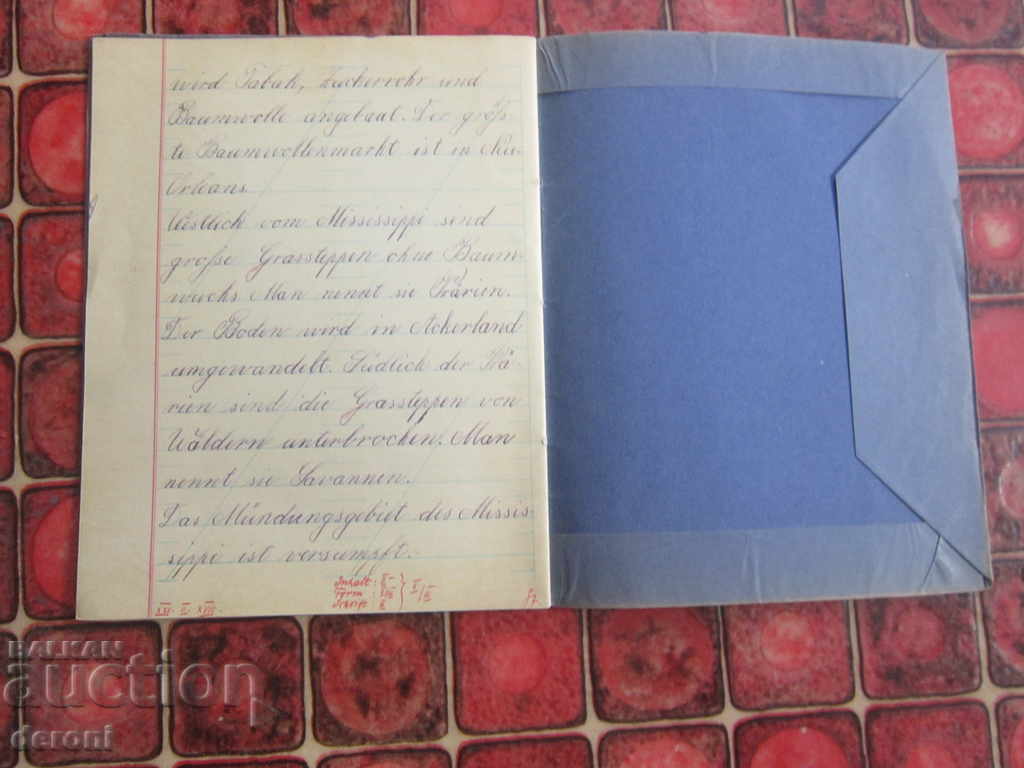 wird Tabak, Zuckerrohr und
Baumwolle angebaut. Der größ-
te Baumwollenmarkt ist in Neu
Orleans.
Westlich vom Mississippi sind
große Grassteppen ohne Baum-
wuchs. Man nennt sie Prärien.
Der Boden wird in Ackerland
umgewandelt. Südlich der Prä-
rien sind die Grassteppen von
Wäldern unterbrochen. Man
nennt sie Savannen.
Das Mündungsgebiet des Missis-
sippi ist versumpft.
Inhalt: II
Form:
Schrift: II
BALKAN
auction
deroni